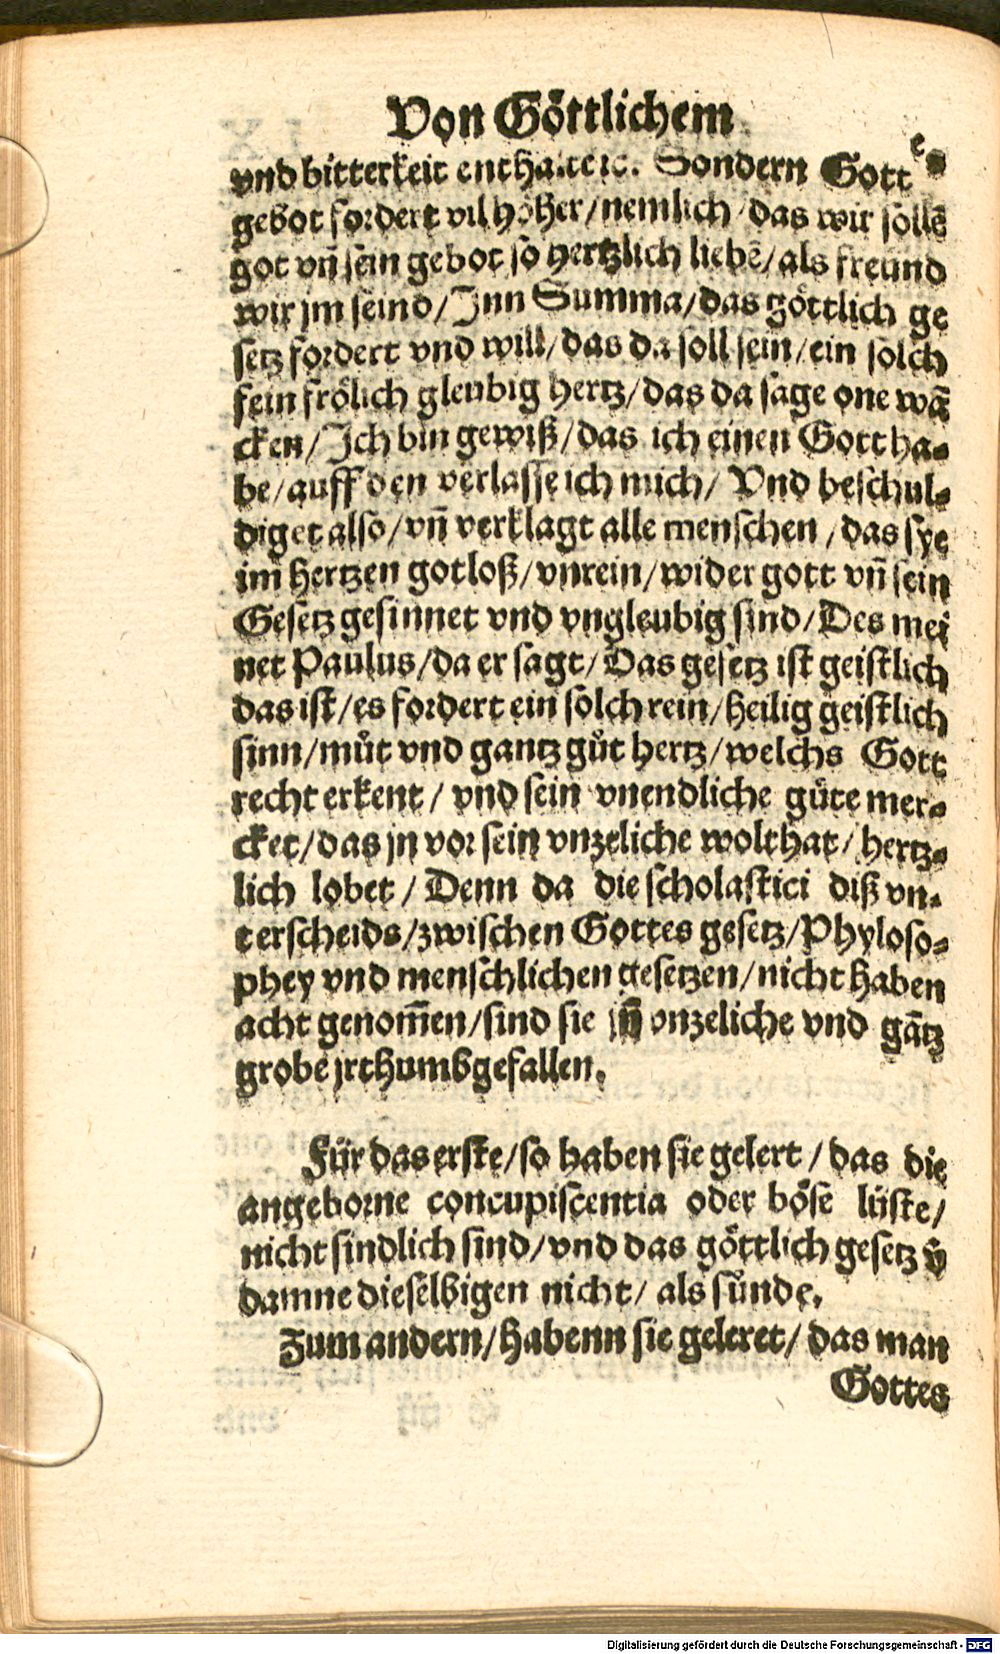 Von Göttlichem
vnd bitterkeit Sondern Gottes
gebot fordert vil höher/nemlich das wir sollē
got vn̄ sein gebot so hertzlich liebē/als freund
wir jm seind/Inn Summa/das göttlich ge
setz fordert vnd will/das da soll sein/ein solch
fein frölich gleubig hertz/das da sage one wā
cken/Ich bin gewiß/das ich einen Gott ha-
be/auff den verlasse ich mich/ Vnd beschul-
diget also/vn̄ verklagt alle menschen/das sye
im hertzen gotloß/vnrein/wider gott vn̄ sein
Gesetz gesinnet vnd vngleubig sind/Des mei
net Paulus/da er sagt/Das gesetz ist geistlich
das ist/es fordert ein solch rein/heilig geistlich
sinn/můt vnd gantz gůt hertz/welchs Gott
recht erkent/ vnd sein vnendliche güte mer-
cket/das jn vor sein vnzeliche wolthat/hertz-
lich lobet/ Denn da die scholastici diß vn-
terscheids/zwischen Gottes gesetz/Phyloso-
phey vnd menschlichen gesetzen/nicht haben
acht genom̄en/sind sie jn̄ vnzeliche vnd gātz
grobe jrthumb gefallen.
Für das erste/so haben sie gelert/das die
angeborne concupiscentia oder böse lüste/
nicht sindlich sind/vnd das göttlich gesetz v̄
damne dieselbigen nicht/ als sünde.
Zum andern/habenn sie geleret/das man
Gottes
Digitalisierung gefördert durch die Deutsche Forschungsgemeinschaft - DFG